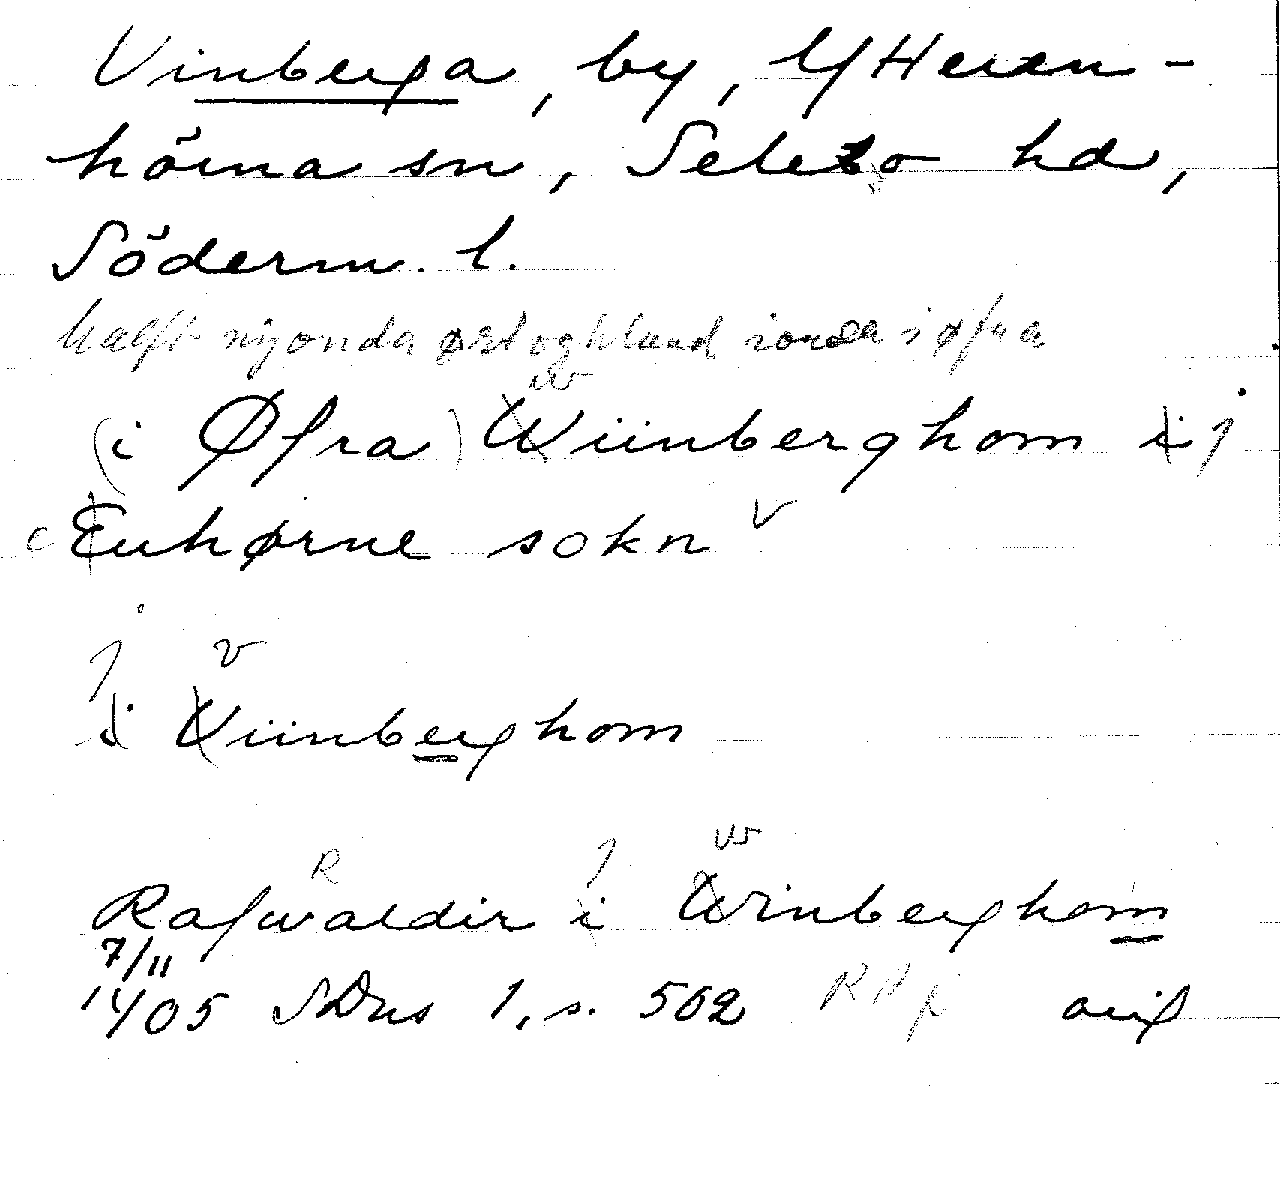 Vinberga, by, Y Heren-
hörna sn, Selebo hd,
Söderm. l.
halft nyonda ørtoghland iordh i øfra
w
(i Øfra) Wiinberghom i j
c Enhørne sokn v
j v
i Viinberghom
R j w
Rafwaldir i Winberghom
7/11
1405 SDns 1, s. 502 RAp orig